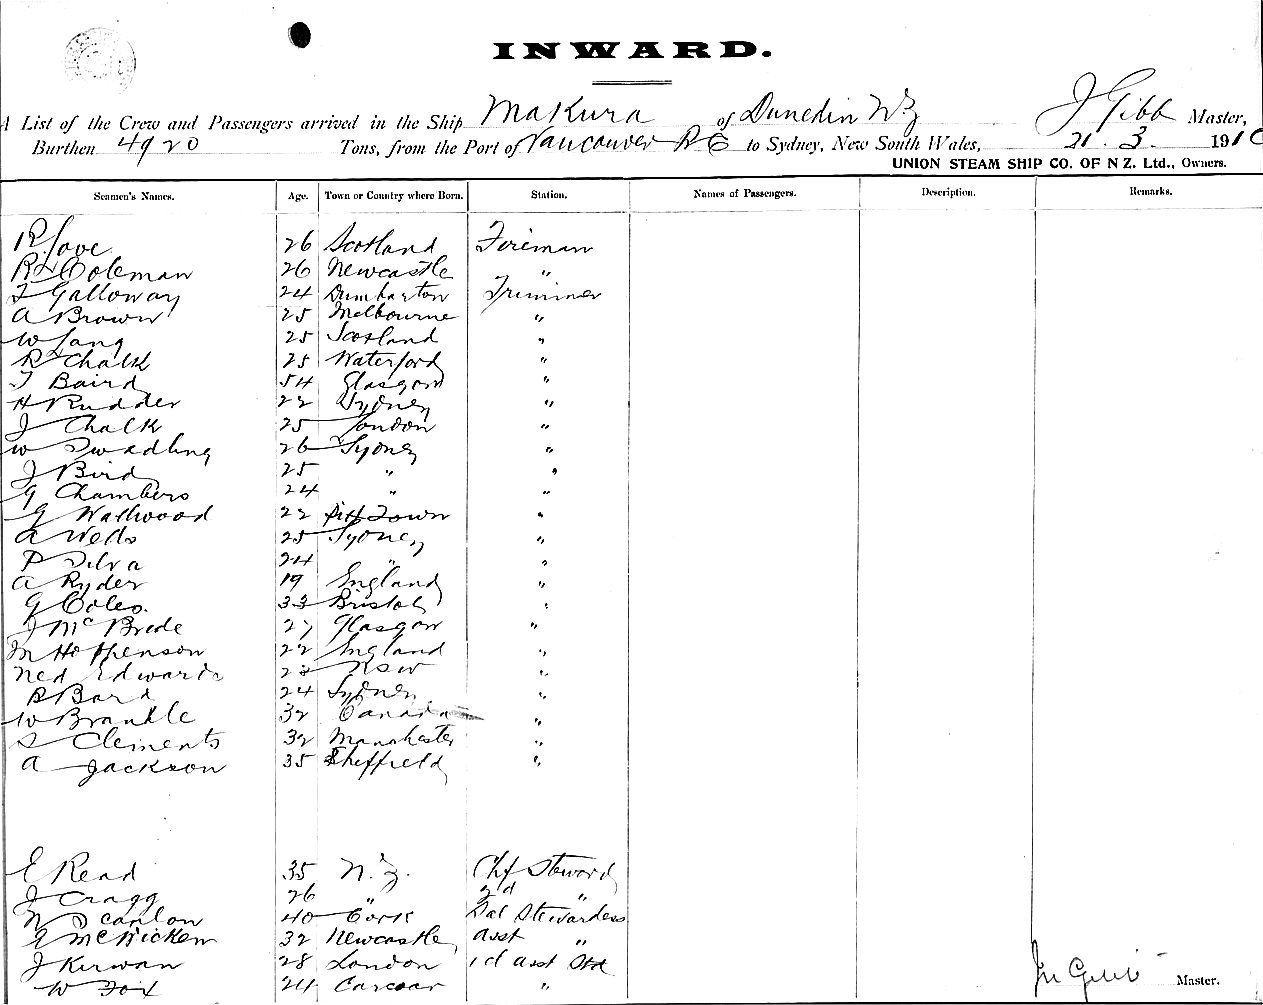 INWARD.
A List of the Crew and Passengers arrived in the Ship Makura of Dunedin N.Z J Gibb Master,
Burthen 4920 Tons, from the Port of Vancouver B C to Sydney, New South Wales, 21. 3. 1910
UNION STEAM SHIP CO. OF N Z. Ltd., Owners.
Seamen's Names. Age. Town or Country where Born. Station. Names of Passengers. Description. Remarks.
R Love 26 Scotland Fireman
R Coleman 26 Newcastle "
T Galloway 24 Dumbarton Trimmer
A Brown 25 Melbourne "
W Lang 25 Scotland "
R Chalk 25 Waterford "
T Baird 54 Glasgow "
H Rudder 22 Sydney "
J Chalk 25 London "
W Swadling 26 Sydney "
J Bird 25 " "
G Chambers 24 " "
G Wallwood 22 Pitt Town "
A Wells 25 Sydney "
P Silva 24 " "
A Ryder 19 England "
G Coles. 33 Bristol "
J McBride 27 Glasgow "
M Hoppenson 22 England "
Ned Edwards NSW "
R Bard 24 Sydney "
W Bramble 32 Canada "
S Clements 32 Manchester "
A Jackson 35 Sheffield "
E Read 35 N.Z. Chf Steward
J Cragg 26 " 2d "
N Scanlon 40 Cork Sal Stewardess
McBicken 32 Newcastle Asst "
J Kirwan 28 London Asst Std
W Fox 24 Carcoar "
Master.